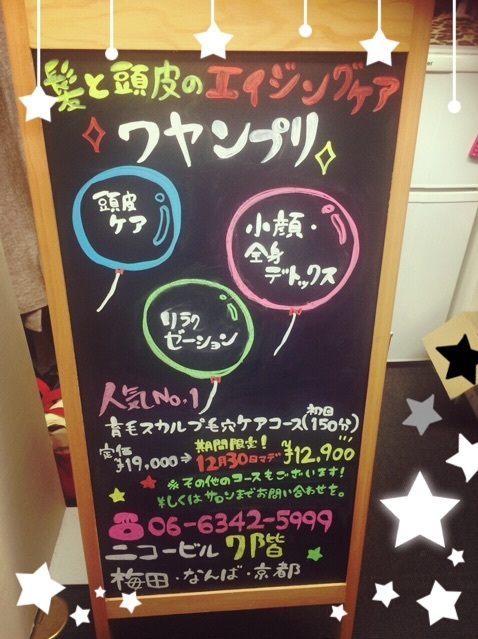 髪と頭皮のエイジングケア
ワヤンプリ
頭皮
ケア
小顔・
全身
デトックス
リラク
ゼーション
人気No.1
育毛スカルプ毛穴ケアコース(初回150分)
定価¥19,000→期間限定!12月30日マデ¥12,900
※その他のコースもございます!
詳しくはサロンまでお問い合わせを。
☎06-6342-5999
ニコービル7階
梅田・なんば・京都